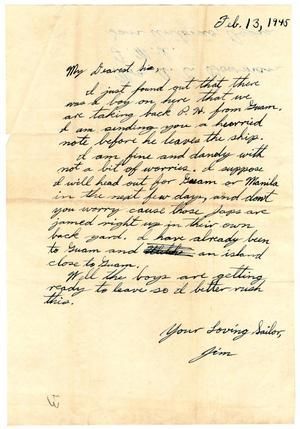 Feb. 13, 1945
My Dearest
I just found out that there
was a boy on here that we
are taking back P. H. from Guam.
I am sending you a hourried
note before he leaves the ship.
I am fine and dandy with
not a bit of worries. I suppose
I will head out for Guam or Manila
in the next few days, and dont
you worry cause those Japs are
jamed right up in their own
back yard. I have already been
to Guam and an island
close to Guam.
Well the boys are getting
ready to leave so I better rush
this.
Your Loving Sailor,
Jim